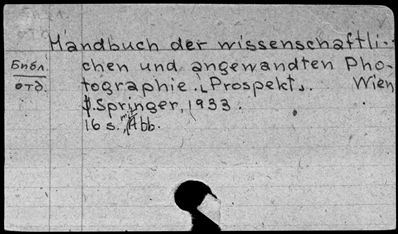 Handbuch der wissenschaftli-
Библ. chen und angewandten Pho-
отд. tographie. [Prospekt]. Wien
J. Springer, 1933.
16 s. m. Abb.